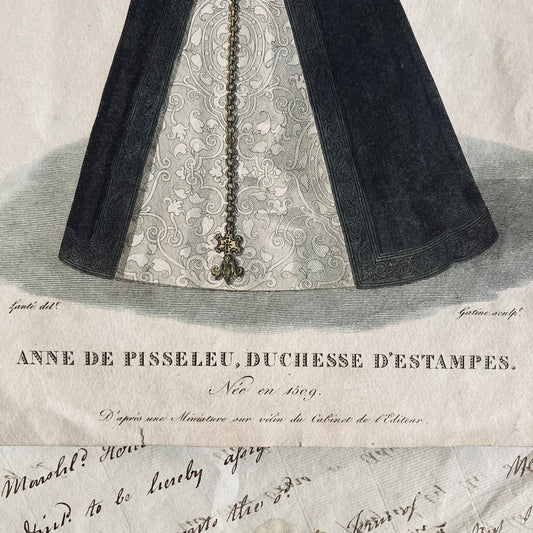 Lanté del.t
Gatine sculp.t
ANNE DE PISSELEU, DUCHESSE D'ESTAMPES.
Née en 1509.
D'après une Miniature sur vélin du Cabinet de l'Editeur.
to be hereby